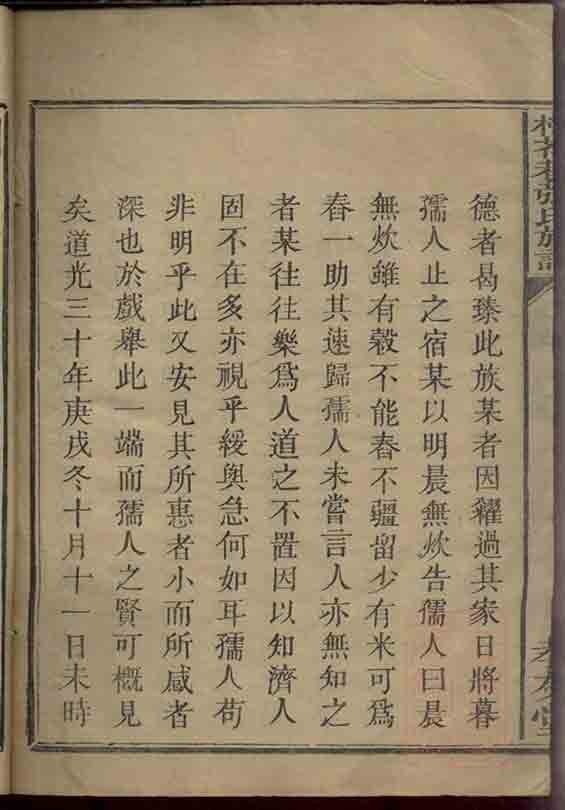 德者曷臻此族某者因糴過其家日將暮
孺人止之宿某以明晨無炊告孺人曰晨
無炊雖有穀不能舂不疆留少有米可為
舂一助其速歸孺人未嘗言人亦無知之
者某往往樂為人道之不置因以知濟人
固不在多亦視乎綏與急何如耳孺人苟
非明乎此又安見其所惠者小而所感者
深也於戲舉此一端而孺人之賢可概見
矣道光三十年庚戌冬十月十一日未時